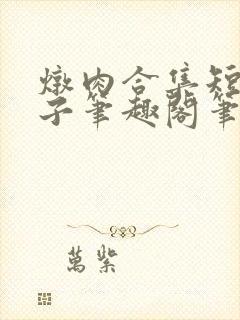 燉肉合集短
子筆趣閣筆
萬紫